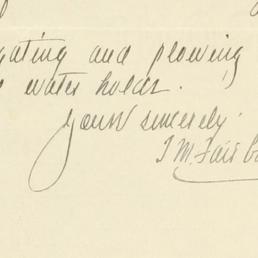 gating and plowing
water holds.
Yours sincerely.
J M Fair